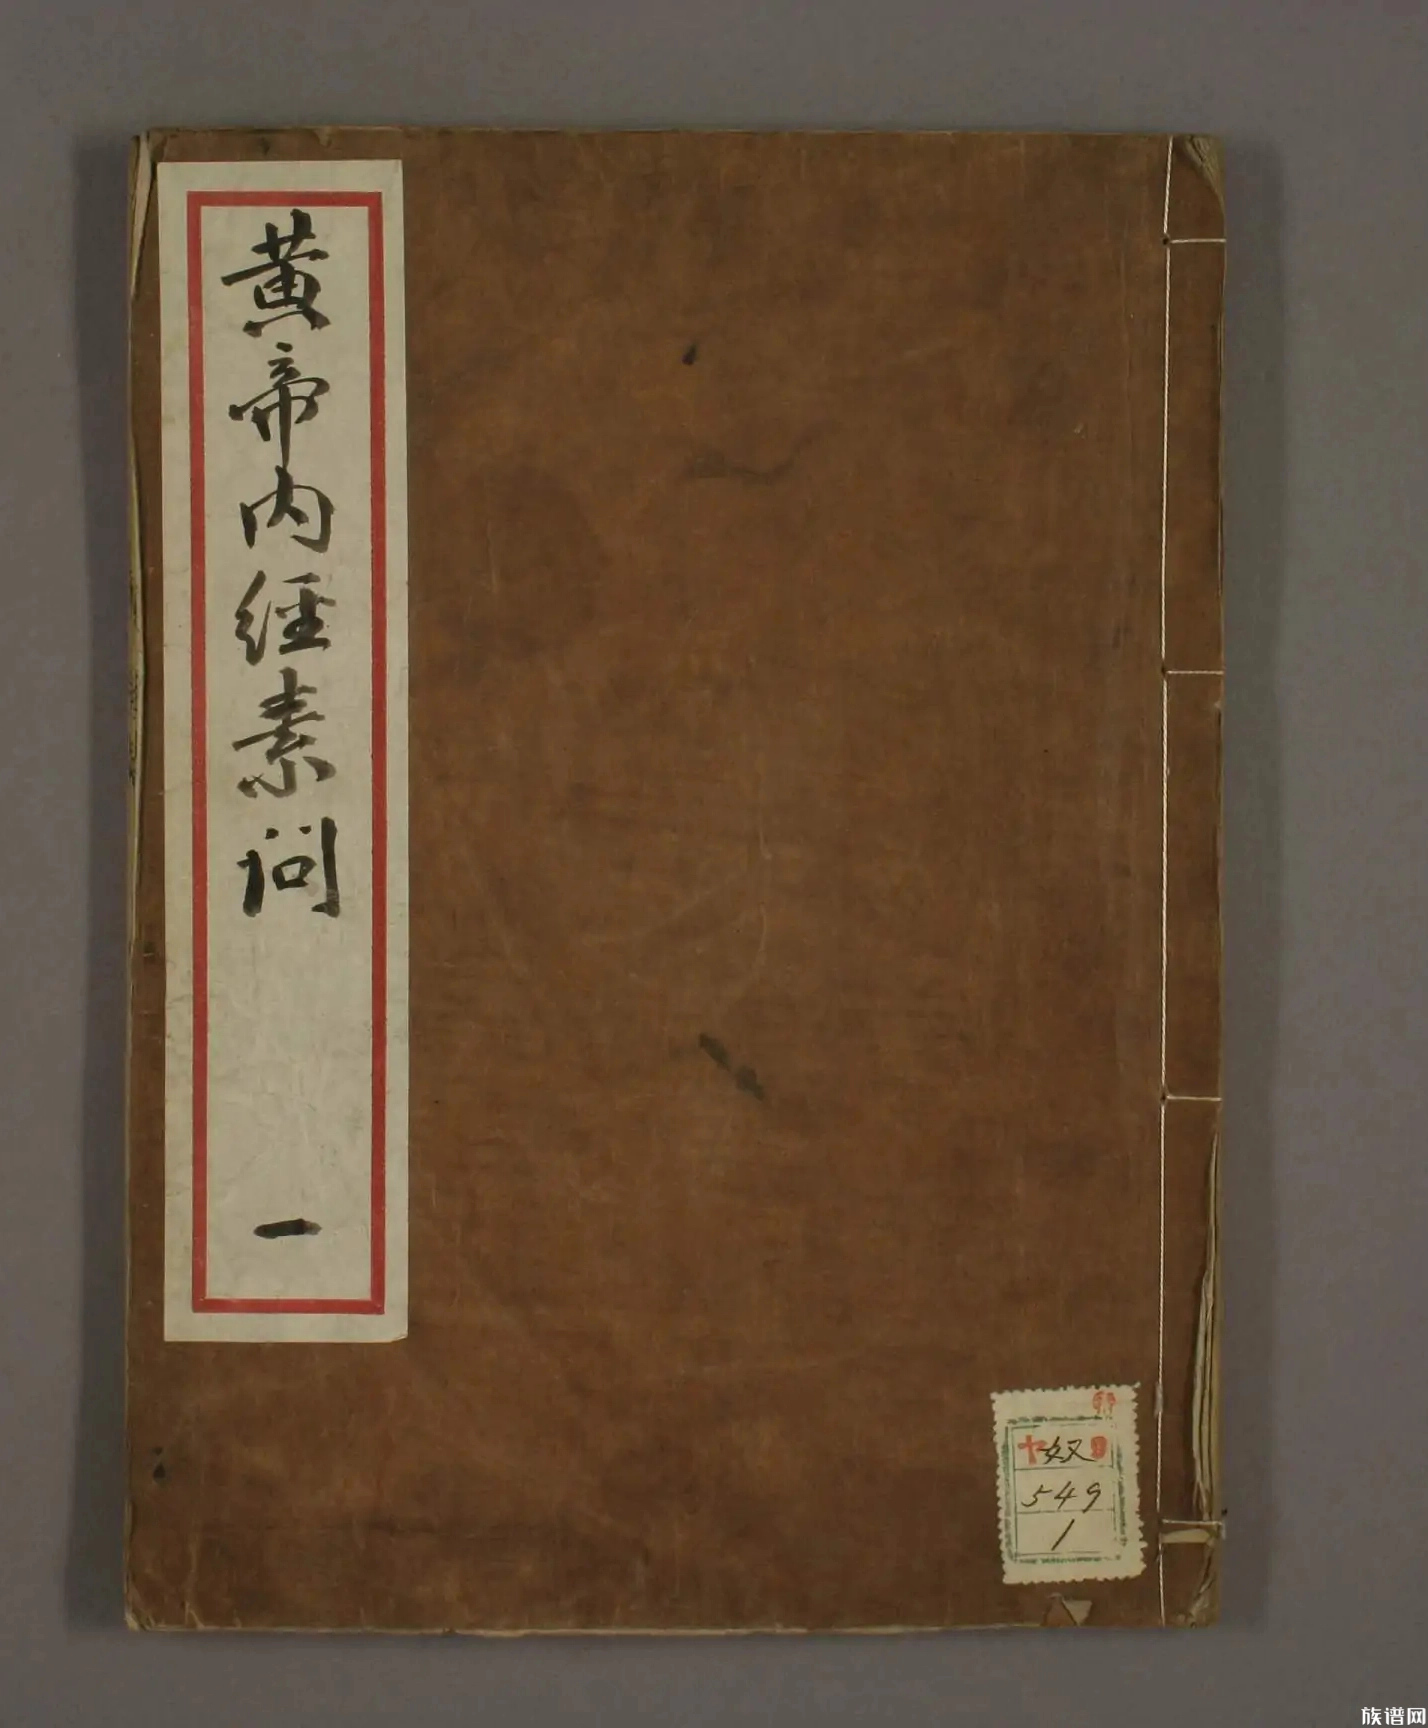 黄帝内經素问
一
奴
549
1
族谱网